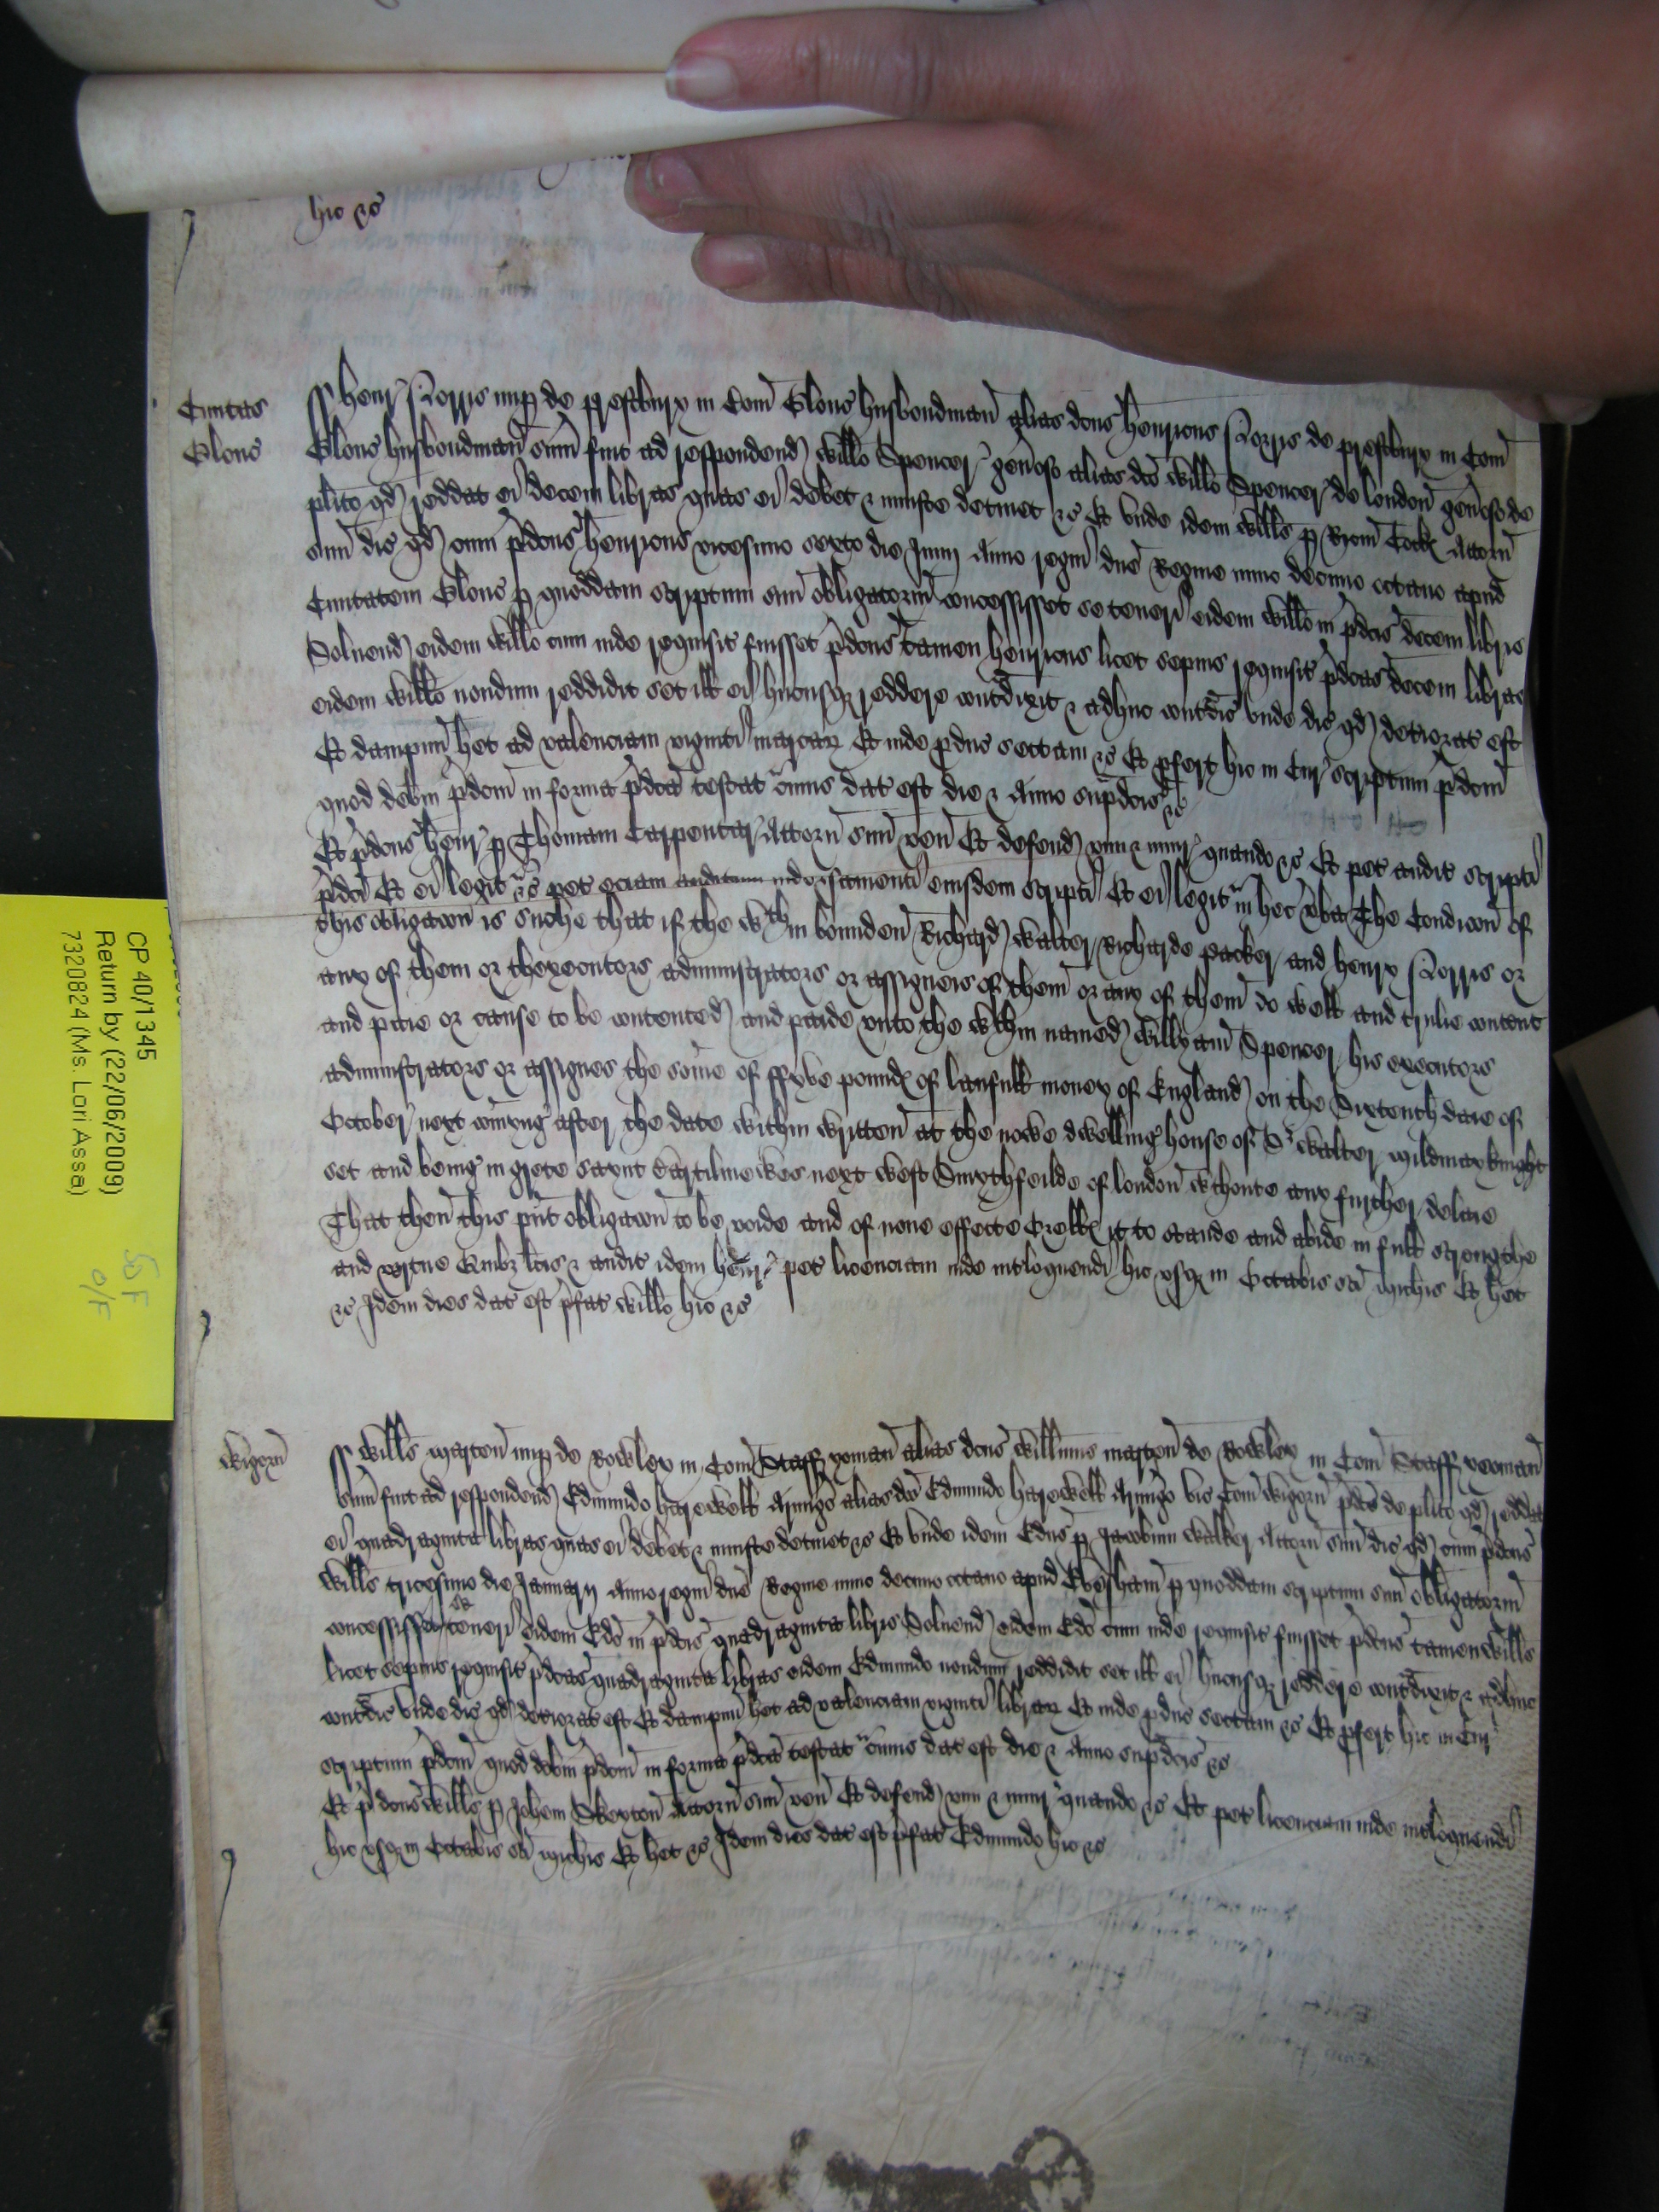 hic &c
Civitas
Glouc
Henr Norris nup de prestbury in Com Glouc husbondman alias dcus Henricus Norris de prestbury in Com
Glouc husbondman sum fuit ad respondend Willo Spencer genoso alias dco Willo Spencer de london genoso de
plito qd reddat ei decem libras quas ei debet & iniuste detinet &c Et unde idem Wills p Ricm Cock Attorn
suum dic qd cum pdcus Henricus vicesimo sexto die Junij Anno regni dne Regine nunc decimo octavo apud
Civitatem Glouc p quoddam scriptum suum obligatorium concessisset se teneri eidem Willo in pdcis decem libris
Solvend eidem Willo cum inde requisit fuisset pdcus tamen Henricus licet sepius requisit pdcas decem libras
eidem Willo nondum reddidit set ill ei hucusq reddere contradixit & adhuc contradic unde dic qd deteriorat est
Et dampnu het ad valenciam viginti marcar Et inde pduc sectam &c Et pfert hic in Cur scriptum pdcm
quod debm pdcm in forma pdca testat cuius dat est die & Anno supdcis &c
Et pdcus Henr p Thomam Carpenter Attorn suum ven Et defend vim & iniur quando &c Et pet audit scripti
pdci Et ei legit &c pet eciam auditum indorsamenti eiusdem scripti Et ei legit in hec vba The Condicon of
this obligacon is suche that if the wthin bounden Richard Walter Richarde packer and Henry Norris or
any of them or thexecutors administrators or assigneis of them or any of them do well and trulie content
and paie or cause to be contented and paide unto the wthin named Willyam Spencer his executors
administrators or assignes the some of ffyve pound of laufull money of England on the Sixtenth daie of
October next comyng after the date within written at the nowe dwelling house of Sr Walter mildmay knight
set and being in grete saynt Bartilmewes next West Smythfeilde of london wthoute any further delaie
That then this pnt obligacon to be voide and of none effecte Orells it to stande and abide in full strengthe
and vertue Quibz lcis & audit idem Henr pet licenciam inde intloquendi hic usq in Octabis sci Michis Et het
&c Idem dies dat est pfat Willo hic &c
Wigorn
Wills marten nup de Rowley in Com Staff yoman alias dcus Willmus marten de Rowley in Com Staff yeoman
sum fuit ad respondend Edmundo harewell Armigo alias dco Edmundo harewell Armigo vic Com Wigorn pdce de plito qd reddat
ei quadraginta libras quas ei debet & iniuste detinet &c Et unde idem Edus p Jacobum Walker Attorn suum dic qd cum pdcus
Wills tricesimo die Januarij Anno regni dne Regine nunc decimo octavo apud Evesham p quoddam scriptum suum obligatorium
concessisset se teneri eidem Edo in pdcis quadraginta libris Solvend eidem Edo cum inde requisit fuisset pdcus tamen Wills
licet sepius requisit pdcas quadraginta libras eidem Edmundo nondum reddidit set ill ei hucusq reddere contradixit & adhuc
contradic unde dic qd deteriorat est Et dampnu het ad valenciam viginti librar Et inde pduc sectam &c Et pfert hic in Cur
scriptum pdcm quod debm pdcm in forma pdca testat cuius dat est die & Anno supdcis &c
Et pdcus Wills p Johem Skeyton Attorn suum ven Et defend vim & iniur quando &c Et pet licenciam inde intloquendi
hic usq in Octabis sci Michis Et het &c Idem dies dat est pfat Edmundo hic &c
CP 40/1345
Return by (22/06/2009)
7320824 (Ms. Lori Assa)
SF
O/F